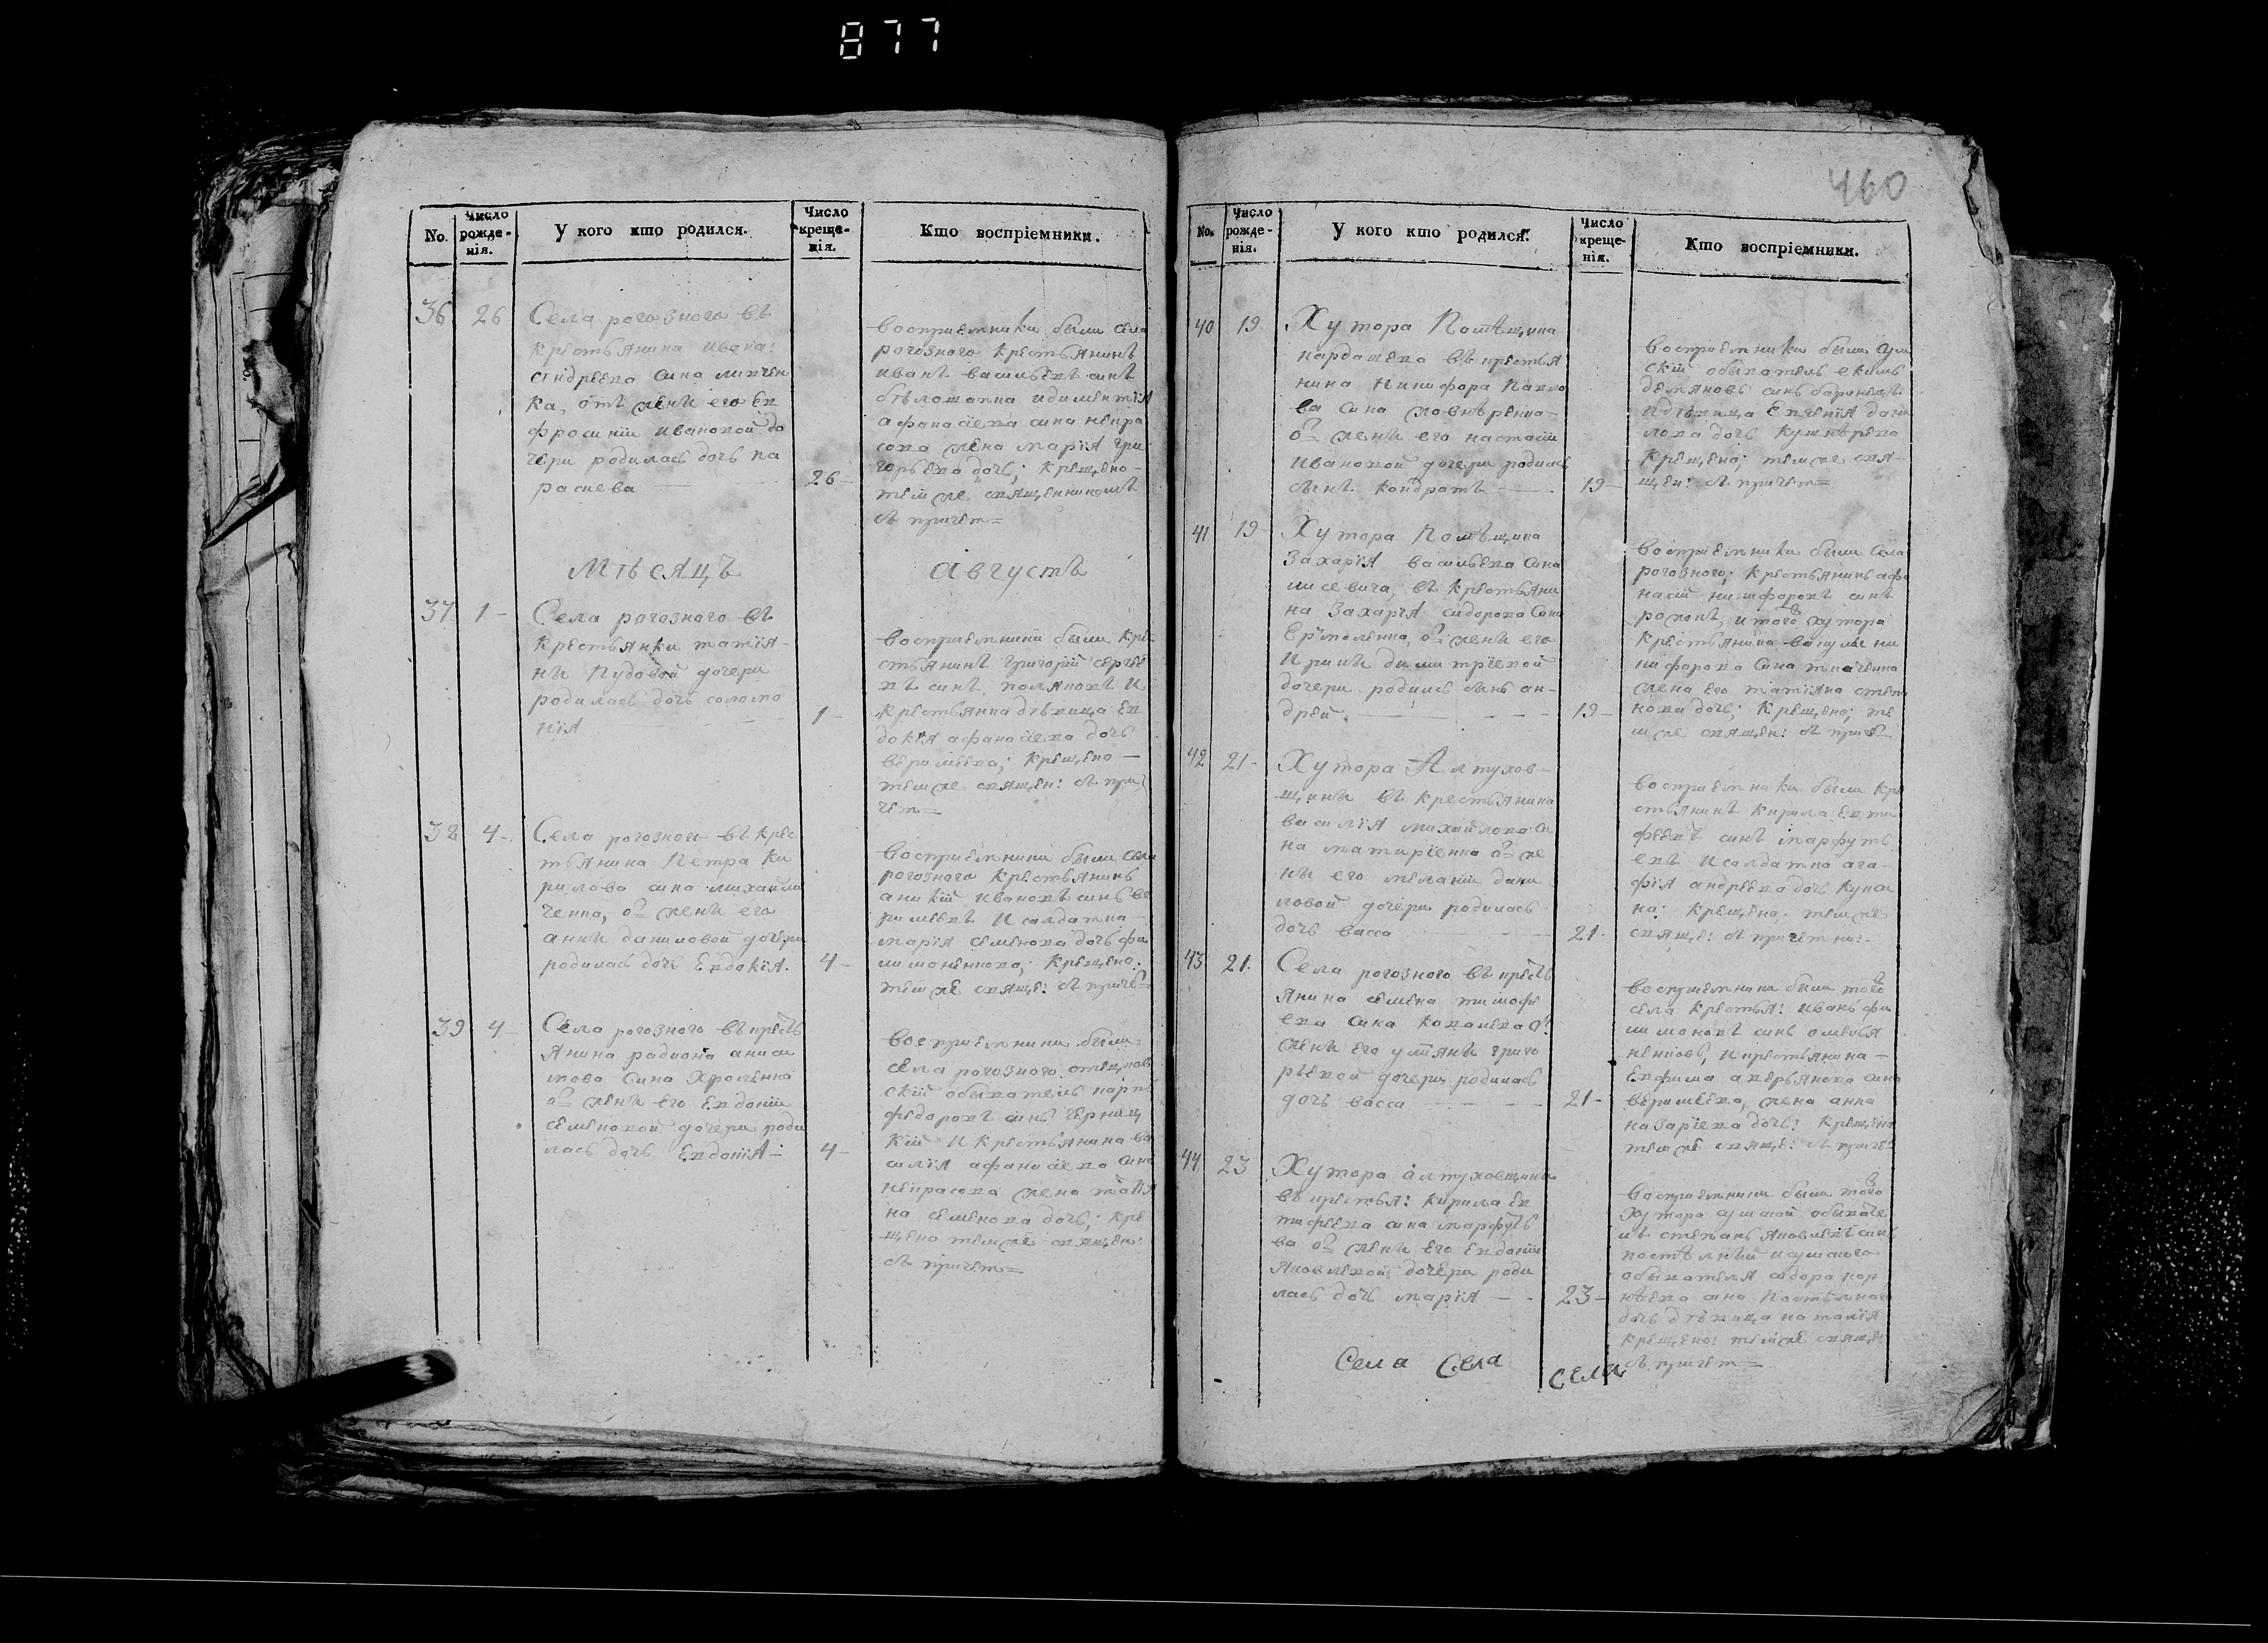 877
460
No.
Число рожде-нія.
У кого кто родился.
Число креще-нія.
Кто воспріемники.
36 26 Села рогозного въ
крестьянина ивана
андреева сина
ка, отъ жени его ев
фросиніи ивановой до
чери родилась дочь па
раскева 26
воспріемники были села
рогозного крестьянинъ
иванъ васильевъ синъ
белошапка идиментія
афанасіева сина некра
сова жена марія гри
горьева дочь; крещено
темже священникомъ
съ причет=
Мѣсяцъ Августъ
37 1 Села рогозного въ
крестьянки татіа
ни Пудовой дочери
родилась дочь соломо
нія 1
воспріемники были кре
стьянинъ григорій сергее
въ синъ поляковъ и
крестьянка дѣвица ев
докія афанасіева дочь
крещено
темже священ: съ при
чет=
38 4 Села рогозного въ крес
тьянина Петра ки
рилова сина михайли
ченка, от жени его
анни даниловой дочери
родилась дочь Евдокія. 4
воспріемники были села
рогозного крестьянинъ
аникій ивановъ синъ ве
римеевъ и солдатка
марія семенова дочь фи
лимоненкова; крещено:
темже свяще: съ приче=
39 4 Села рогозного въ крест
янина радиона аниси
мова сина Хроленка
от жени его Евдокіи
семеновой дочери роди
лась дочь Евдокія 4
воспріемники были
села рогозного
скій обыватель карпъ
федоровъ синъ черниц
кій и крестьянина ва
силія афанасіева сина
некрасова жена татія
на семенова дочь; кре
щено темже священ:
съ причет=
No.
Число рожде-нія.
У кого кто родился.
Число креще-нія.
Кто воспріемники.
40 19 Хутора Помѣщика
кардашева въ крестья
нина Никифора Павло
ва сина
от жени его настасіи
ивановой дочери родилсь
сынъ кондратъ 19
воспріемники были сум
скій обыватель екимъ
демяновъ синъ баранецъ
идѣвица Евгенія дани
лова дочь кушнѣрева
крещено; темже свя
щен: съ причет=
41 19 Хутора Помѣщика
Захарія васильева сина
лисевича, въ крестьяни
на Захарія сидорова сина
Ермоленка, от жени его
ирини димитріевой
дочери родилсь сынъ ан
дрей. 19
воспріемники были села
рогозного; крестьянинъ афа
насій никифоровъ синъ
и того хутора
крестьянина вакули ни
кифорова сина ткаченка
жена его татіяна степа
нова дочь; крещено; те
мже священ: съ приче=
42 21 Хутора Алтухов
щини въ крестьянина
василія михайлова си
на матирiенка от же
ни его меланіи дани
ловой дочери родилась
дочь васса 21
воспріемники были кре
стьянинъ кирила евти
феевъ синъ марфуть
евъ и солдатка ага
фія андреева дочь
крещено: темже
свяще: съ причетни:
43 21 Села рогозного въ крест
янина семена тимофе
ева сина ковалева от
жени его уліяни григо
рьевой дочери родилась
дочь васса 21
воспріемники были того
села крестья: иванъ фи
лимоновъ синъ омелья
ненковъ, и крестьянина
Евфима аверьянова сина
веримеева, жена анна
назаріева дочь: крещено
темже свяще: съ приче:
44 23 Хутора алтуховщини
въ крестья: кирила ев
тифеева сина марфуть
ва от жени его Евдокіи
яковлевой дочери роди
лась дочь марія 23
воспріемники были того
хутора сумской обывате
ль степанъ яковлевъ синъ
и сумского
обывателя сидора кор
нѣева сина
дочь дѣвица наталія
крещено: темже свяще:
съ причет=
Села Села села